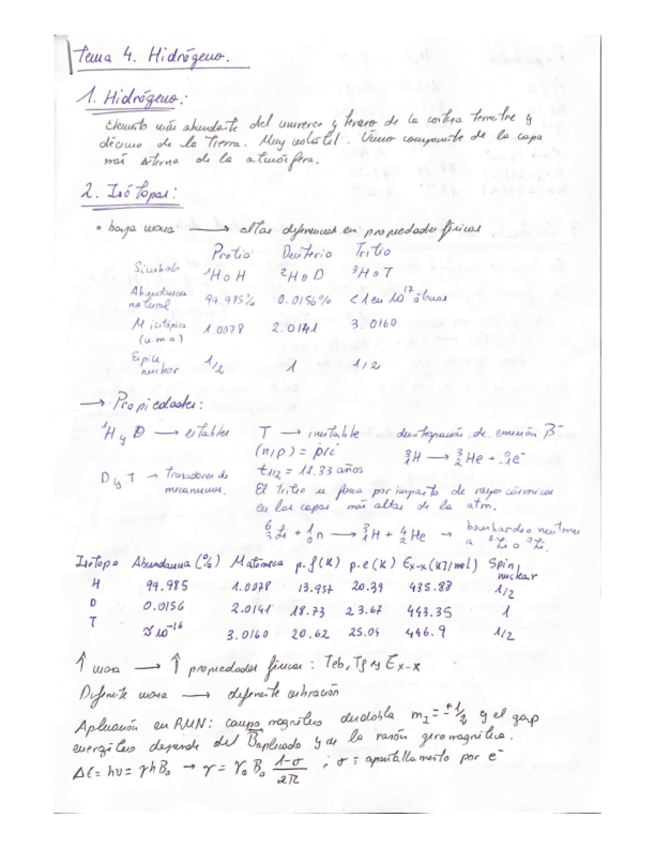 Tema 4. Hidrógeno.
1. Hidrógeno:
Elemento más abundante del universo y tercero de la corteza terrestre y
décimo de la Tierra. Muy volátil. Único componente de la capa
más externa de la atmósfera.
2. Isótopos:
• baja masa → altas diferencias en propiedades físicas
Protio Deuterio Tritio
Símbolo ¹H o H ²H o D ³H o T
Abundancia natural 99.985% 0.0156% <1 en 10¹⁷ átomos
M isotópica (u.m.a) 1.0078 2.0141 3.0160
Espín nuclear 1/2 1 1/2
→ Propiedades:
¹H y D → estables T → inestable desintegración de emisión β⁻
(n/p) = p/i ³₁H → ³₂He + ⁰₋₁e⁻
D y T → Trazadores de mecanismos. t1/2 = 12.33 años
El tritio se forma por impacto de rayos cósmicos
en las capas más altas de la atm.
⁶₃Li + ¹₀n → ³₁H + ⁴₂He → bombardeo neutrones a ⁶Li o ⁷Li.
Isótopo Abundancia (%) Matómica p.f (K) p.e (K) Ex-x (KJ/mol) Spin nuclear
H 99.985 1.0078 13.957 20.39 435.88 1/2
D 0.0156 2.0141 18.73 23.67 443.35 1
T 10⁻¹⁶ 3.0160 20.62 25.04 446.9 1/2
↑ masa → ↑ propiedades físicas: Teb, Tf y Ex-x
Diferente masa → diferente vibración
Aplicación en RMN: campo magnético desdobla mI = ±1/2 y el gap
energético depende del B aplicado y de la razón giromagnética.
ΔE = hν = γħB₀ → ν = γ₀ B₀ (1-σ)/2π ; σ = apantallamiento por e⁻